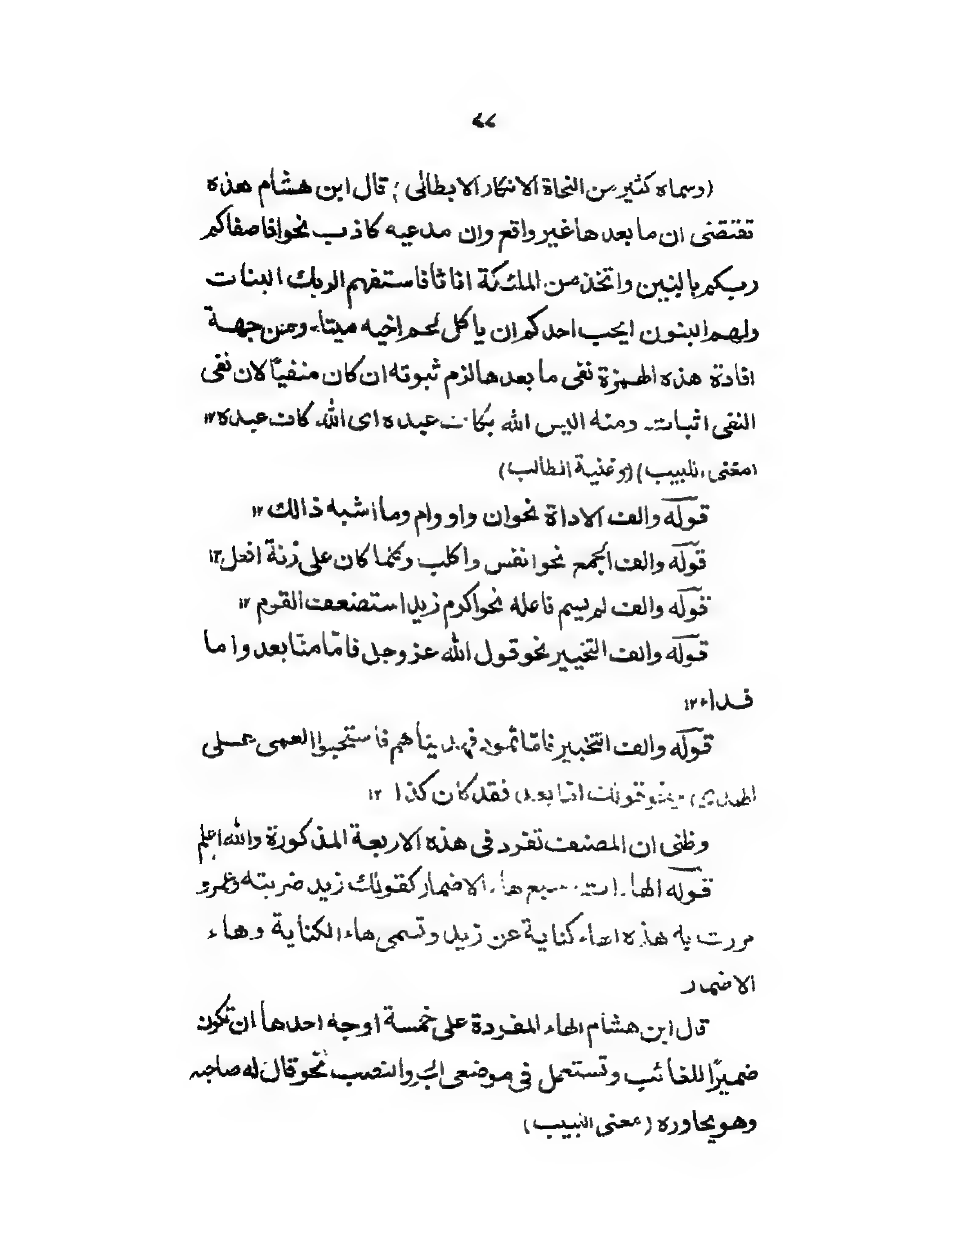 (وسماه كثير من النحاة الانكار الابطالى) قال ابن هشام هذه
تقتضى ان ما بعدها غير واقع وان مدعيه كاذب نحو افاصفاكم
ربكم بالبنين واتخذ من الملئكة اناثا فاستفهم الربك البنات
ولهم البنون ايحب احدكم ان ياكل لحم اخيه ميتاء ومن جهة
افادة هذه الهمزة نفى ما بعدها لزم ثبوته ان كان منفيًا لان نفى
النفى اثبات ومنه اليس الله بكاف عبده اى الله كاف عبده ١٢
(مغنى اللبيب) (وغنية الطالب)
قوله والف الاداة نحو ان واو وام وما اشبه ذالك ١٢
قوله والف الجمع نحو انفس واكلب وكلما كان على زنة افعل ١٢
قوله والف لم يسم فاعله نحو اكرم زيد استضعف القوم ١٢
قوله والف التخيير نحو قول الله عز وجل فامّا منّا بعد واما
فداء ١٢
قوله والف التخبير فامّا ثمود فهديناهم فاستحبوا العمى على
الهدى اما بعد فقد كان كذا ١٢
وظنى ان المصنف تفرد فى هذه الاربعة المذكورة والله اعلم
قوله الهاءات سبع هاء الاضمار كقولك زيد ضربته وعمرو
مررت به هذه الهاء كناية عن زيد وتسمى هاء الكناية وهاء
الاضمار
قال ابن هشام الهاء المفردة على خمسة اوجه احدها ان تكون
ضميرًا للغائب وتستعمل فى موضعى الجر والنصب نحو قال له صاحبه
وهو يحاوره (مغنى اللبيب)